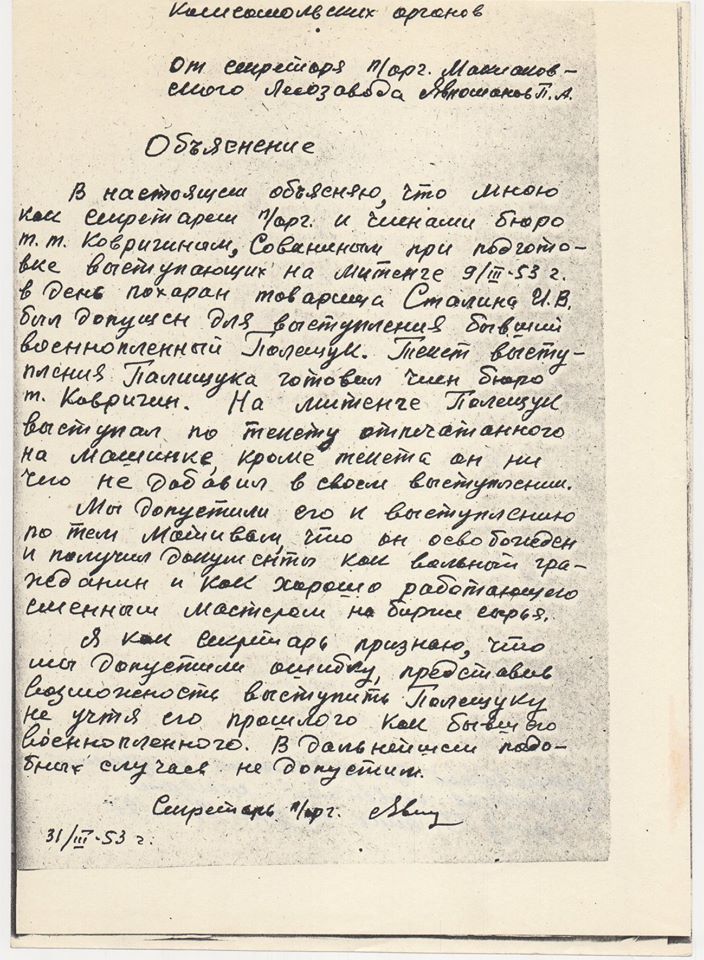 Комсомольских органов
От секретаря п/орг. Маклаков-
ского Лесозавода П. А.
Объяснение
В настоящем объясняю, что мною
как секретарем п/орг. и членами бюро
т. т. Ковригиным, Сованиным при подгото-
вке выступающих на митенге 9/III-53 г.
в день похаран товарища Сталина И. В.
был допущен для выступления бывший
военнопленный Полещук. Текст высту-
пления Палищука готовил член бюро
т. Ковригин. На митенге Полещук
выступал по тексту отпечатанного
на машинке, кроме текста он ни
чего не добавил в своем выступлении.
Мы допустили его к выступлению
по тем мотивам, что он освобожден
и получил документы как вольный гра-
жданин и как хорошо работающего
сменным мастером на бирже сырья.
Я как секретарь признаю, что
мы допустили ошибку, представив
возможности выступить Полещуку
не учтя его прошлого как бывшего
военнопленного. В дальнейшем подо-
бных случаев не допустим.
Секретарь п/орг.
31/III-53 г.